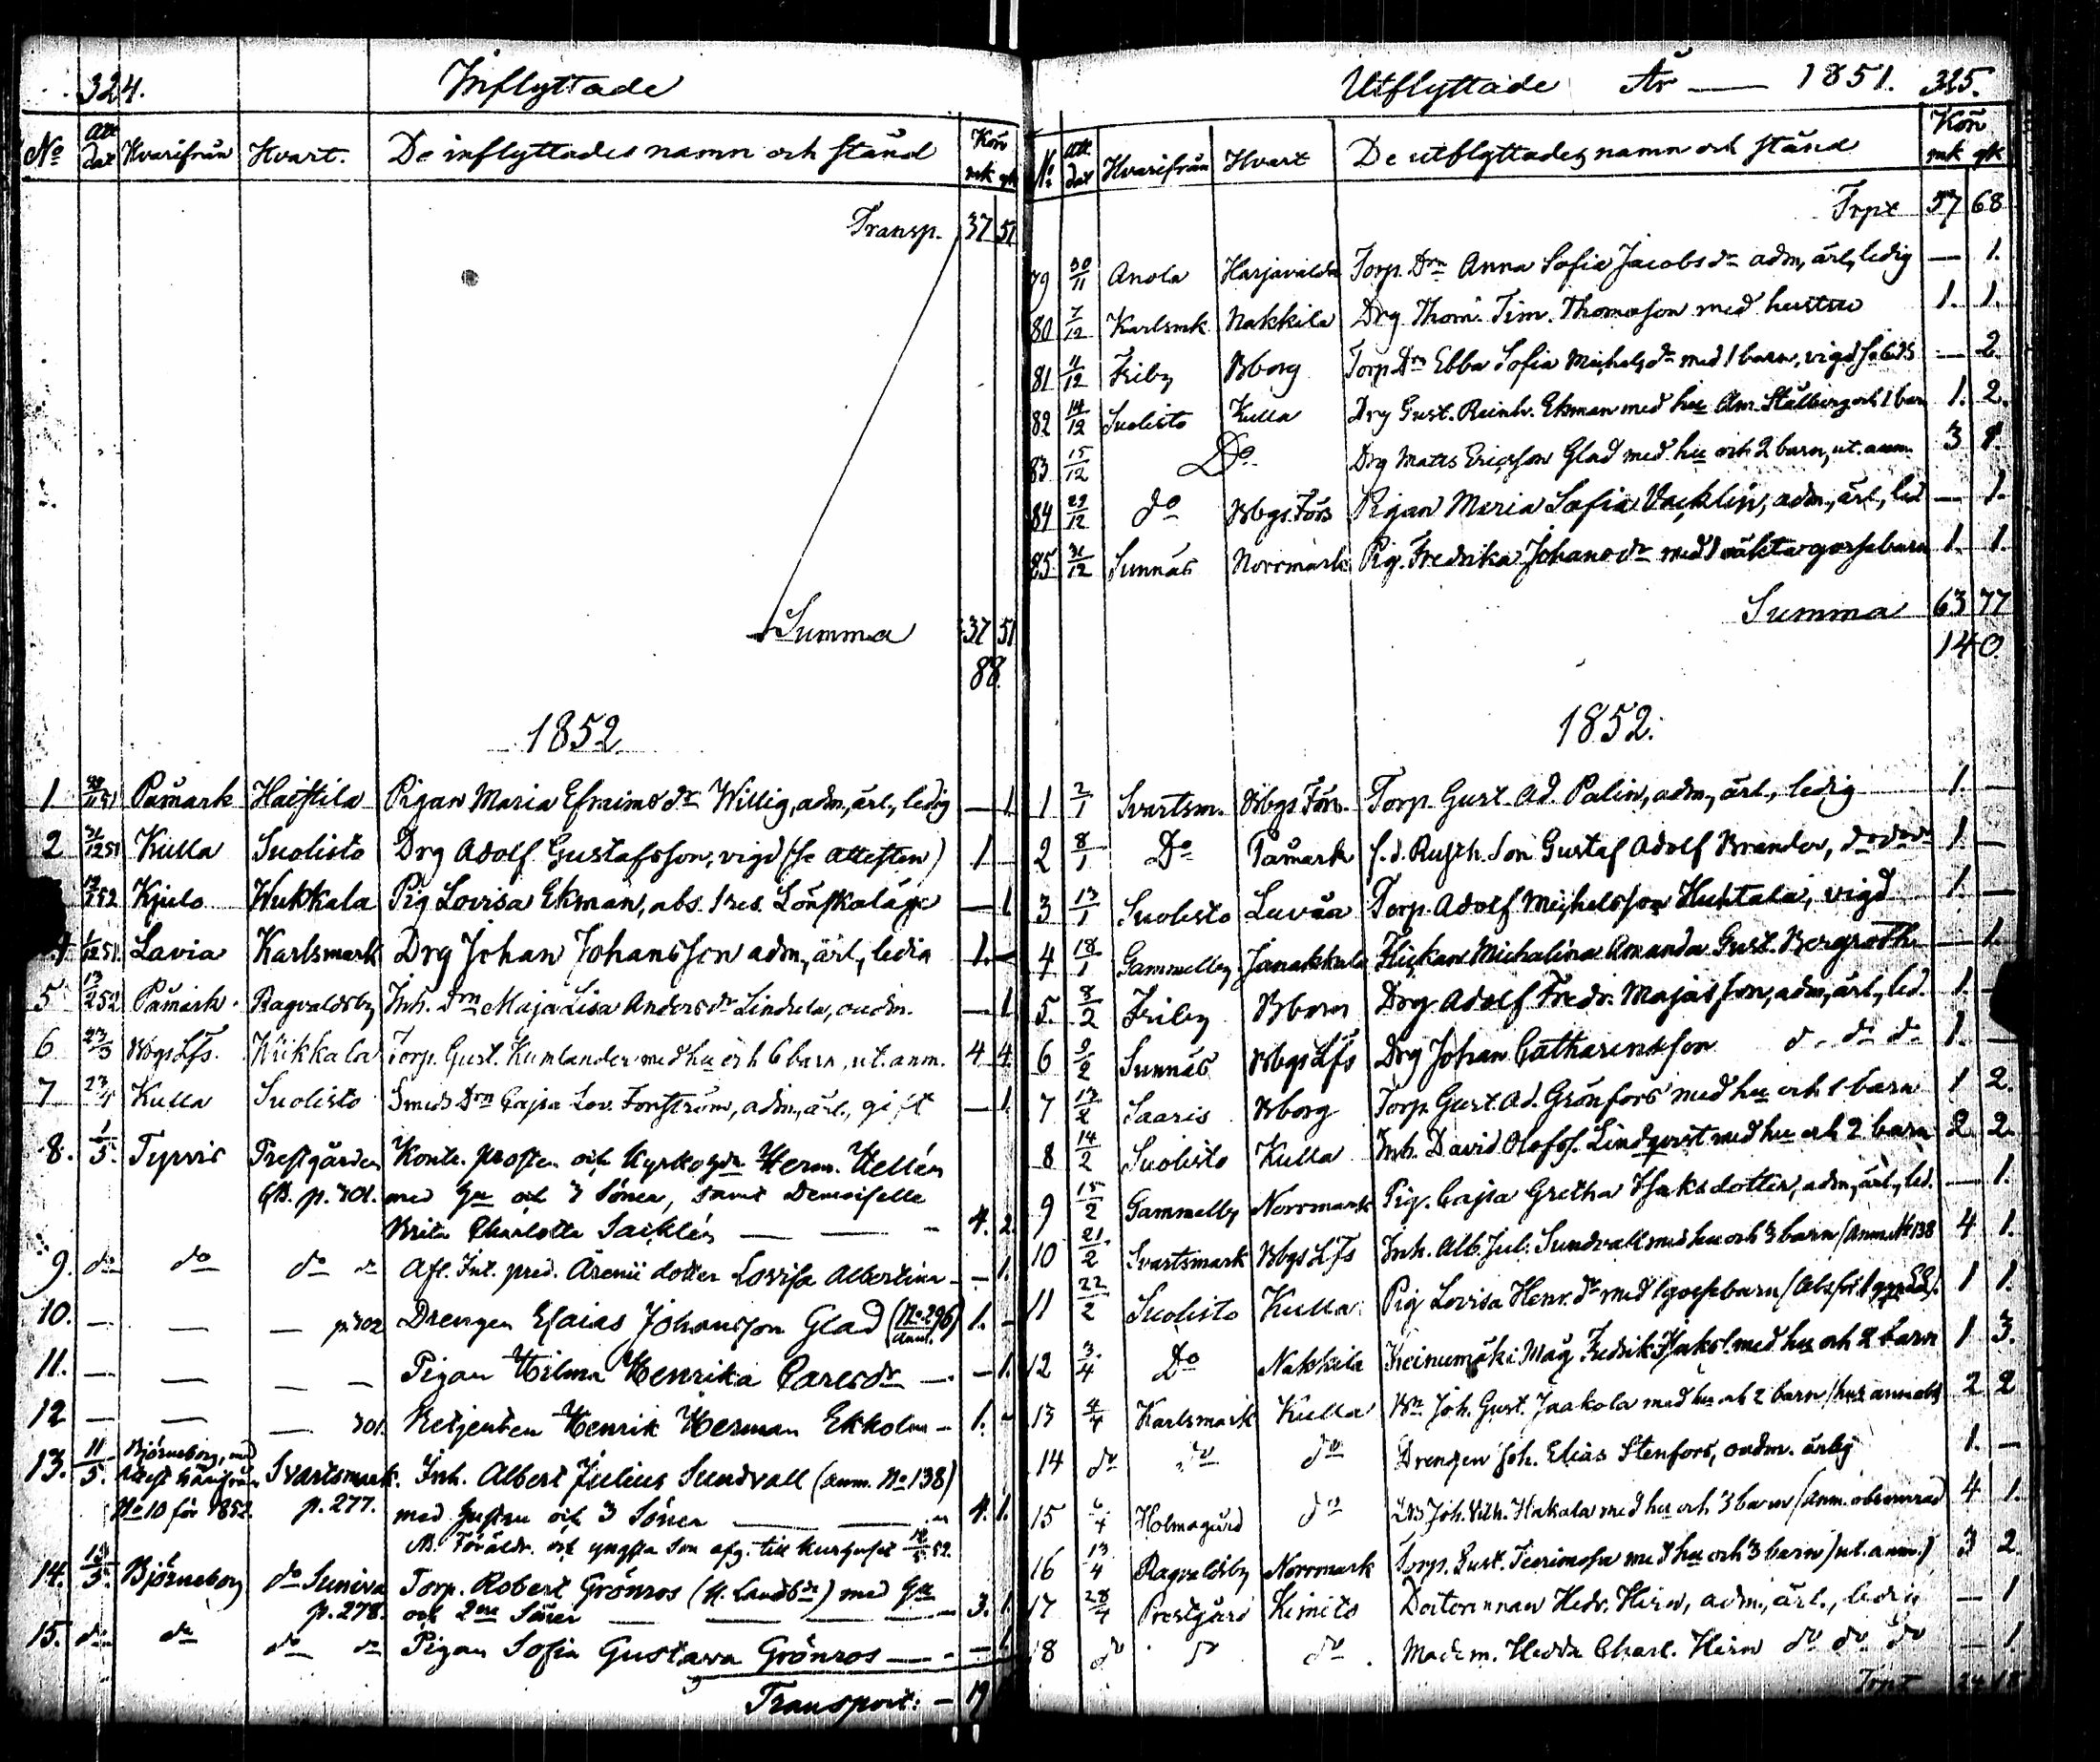 324. Inflyttade
No Att dat Hvarifrån Hvart. De inflyttades namn och stånd Kön mk qk
Transp. 37 51
Summa 37 51
88.
1852.
1 30/11 51 Påmark Haistila Pigan Maria Efraimsdr Willig, adm, ärl, ledig — 1
2 31/12 51 Kulla Suolisto Drg Adolf Gustafsson, vigd (se attesten) 1 —
52 Kjulo Wukkala Pig Lovisa Ekman, abs. — 1
4. 1/12 51. Lavia Karlsmark Drg Johan Johansson adm, ärl, ledig 1. —
5 13/2 52 Påmark Ragvaldsby Inh. Drn Maja Lisa Andersdr Lindela, oadm. — 1
6 23/3 Bbgs Lfs. Wukkala Torp. Gust. Kumlander med hu och 6 barn, ut. anm. 4 4.
7 23/ Kulla Suolisto Smeds Drn Cajsa Lov. Forsström, adm, ärl, gift — 1.
8. 1/5. Tyrvis Prestgården Kontr. prosten och Kyrkohdn Herm. Hellén
p. 301. med hu och 3 Söner, samt Demoiselle
Brita Charlotta Saicklén — — 4. 2.
9. do do do do Afl. Int. pred. Arenii dotter Lovisa Albertina — — 1.
10. — — — p. 302 Drengen Esaias Johansson Glad (No 296 anm.) 1. —
11. — — — — Pigan Hilma Henrika Carlsdr — — 1.
12 — — — 301. Betjenten Henrik Herman Ekholm — 1. —
13. 11/5. Björneborg, med Svartsmark. Inh. Albert Julius Sundvall (anm. No 138)
attest härifrån
No 10 för 1852. p. 277. med hustru och 3 Söner — — 4. 1.
NB. Föräldr. och yngsta son afg. till kurhuset 52.
14. /5. Björneborg do Suniva Torp. Robert Grönros med hu
p. 278. och 2ne Söner — — — 3. 1.
15. do do do do Pigan Sofia Gustava Grönros — — 1
Transport: — 19
Utflyttade År — 1851. 325.
No Att dat Hvarifrån Hvart De utflyttades namn och stånd Kön mk qk
Trpt 57 68
79 30/11 Anola Harjavalda Torp. Drn Anna Sofia Jacobsdr adm, ärl, ledig — 1.
80 7/12 Karlsmk Nakkila Drg Thom. Tim. Thomasson med hustru 1. 1.
81 11/12 Friby Bborg Torp Drn Ebba Sofia Michelsdr med 1 barn, vigd — 2
82 14/12 Suolisto Kulla Drg Gust. Reinh. Ekman med hu Am. Stålberg och 1 barn 1. 2.
83 15/12 Do Drg Matts Ericsson Glad med hu och 2 barn, ut. anm. 3 1.
84 29/12 do Bbgs. Förs Pigan Maria Sofia Vacklin, adm, ärl, led — 1.
85 31/12 Sunnäs Norrmark Pig. Fredrika Johansdr med 1 oäkta gossebarn 1. 1.
Summa 63 77
140.
1852.
1 2/1 Svartsm. Bbgs Förs. Torp. Gust. Ad. Palin, adm, ärl, ledig 1. —
2 8/1 Do Påmark f.d. Rusth. Son Gustaf Adolf Brander, do do do 1. —
3 13/1 Suolisto Luvia Torp. Adolf Michelsson Huhtala, vigd 1. —
4 18/1 Gammelby Janakkala Flickan Michalina Amanda Gust. Bergroth — 1.
5. 8/2 Friby Bborg Drg Adolf Fredr. Majasson, adm, ärl, led. 1. —
6 9/2 Sunnäs Bbgs Lfs Drg Johan Catharinasson do do do 1. —
7 13/2 Saaris Bborg Torp. Gust. Ad. Grönfors med hu och 1 barn 1 2.
8 14/2 Suolisto Kulla Inh. David Olofss. Lindqvist med hu och 2 barn 2 2.
9 15/2 Gammelby Norrmark Pig. Cajsa Gretha Isaksdotter, adm, ärl, led. — 1.
10 21/2 Svartsmark Bbgs Lfs Inh. Alb. Jul. Sundvall med hu och 3 barn (Anm. No 138 4 1.
11 22/2 Suolisto Kulla Pig Lovisa Henr. dr med 1 gossebarn 1 1.
12 3/4 Do Nakkila Keinumäki Måg Fredrik Isaks. med hu och 2 barn 1 3.
13 4/4 Karlsmark Kulla Bn Joh. Gust. Jaakola med hu och 2 barn 2 2
14 do do do Drengen Joh. Elias Stenfors, oadm. ärlig 1. —
15 6/4 Holmagård do Joh. Vilh. Hakala med hu och 3 barn 4 1.
16 13/4 Ragvaldsby Norrmark Torp. Gust. med hu och 3 barn (ut. anm.) 3 2.
17 28/4 Prestgård Kimito Doctorinnan Hedv. Hirn, adm, ärl., ledig — 1
18 do do do Madem. Hedda Charl. Hirn do do do — 1
Trpt 24 18